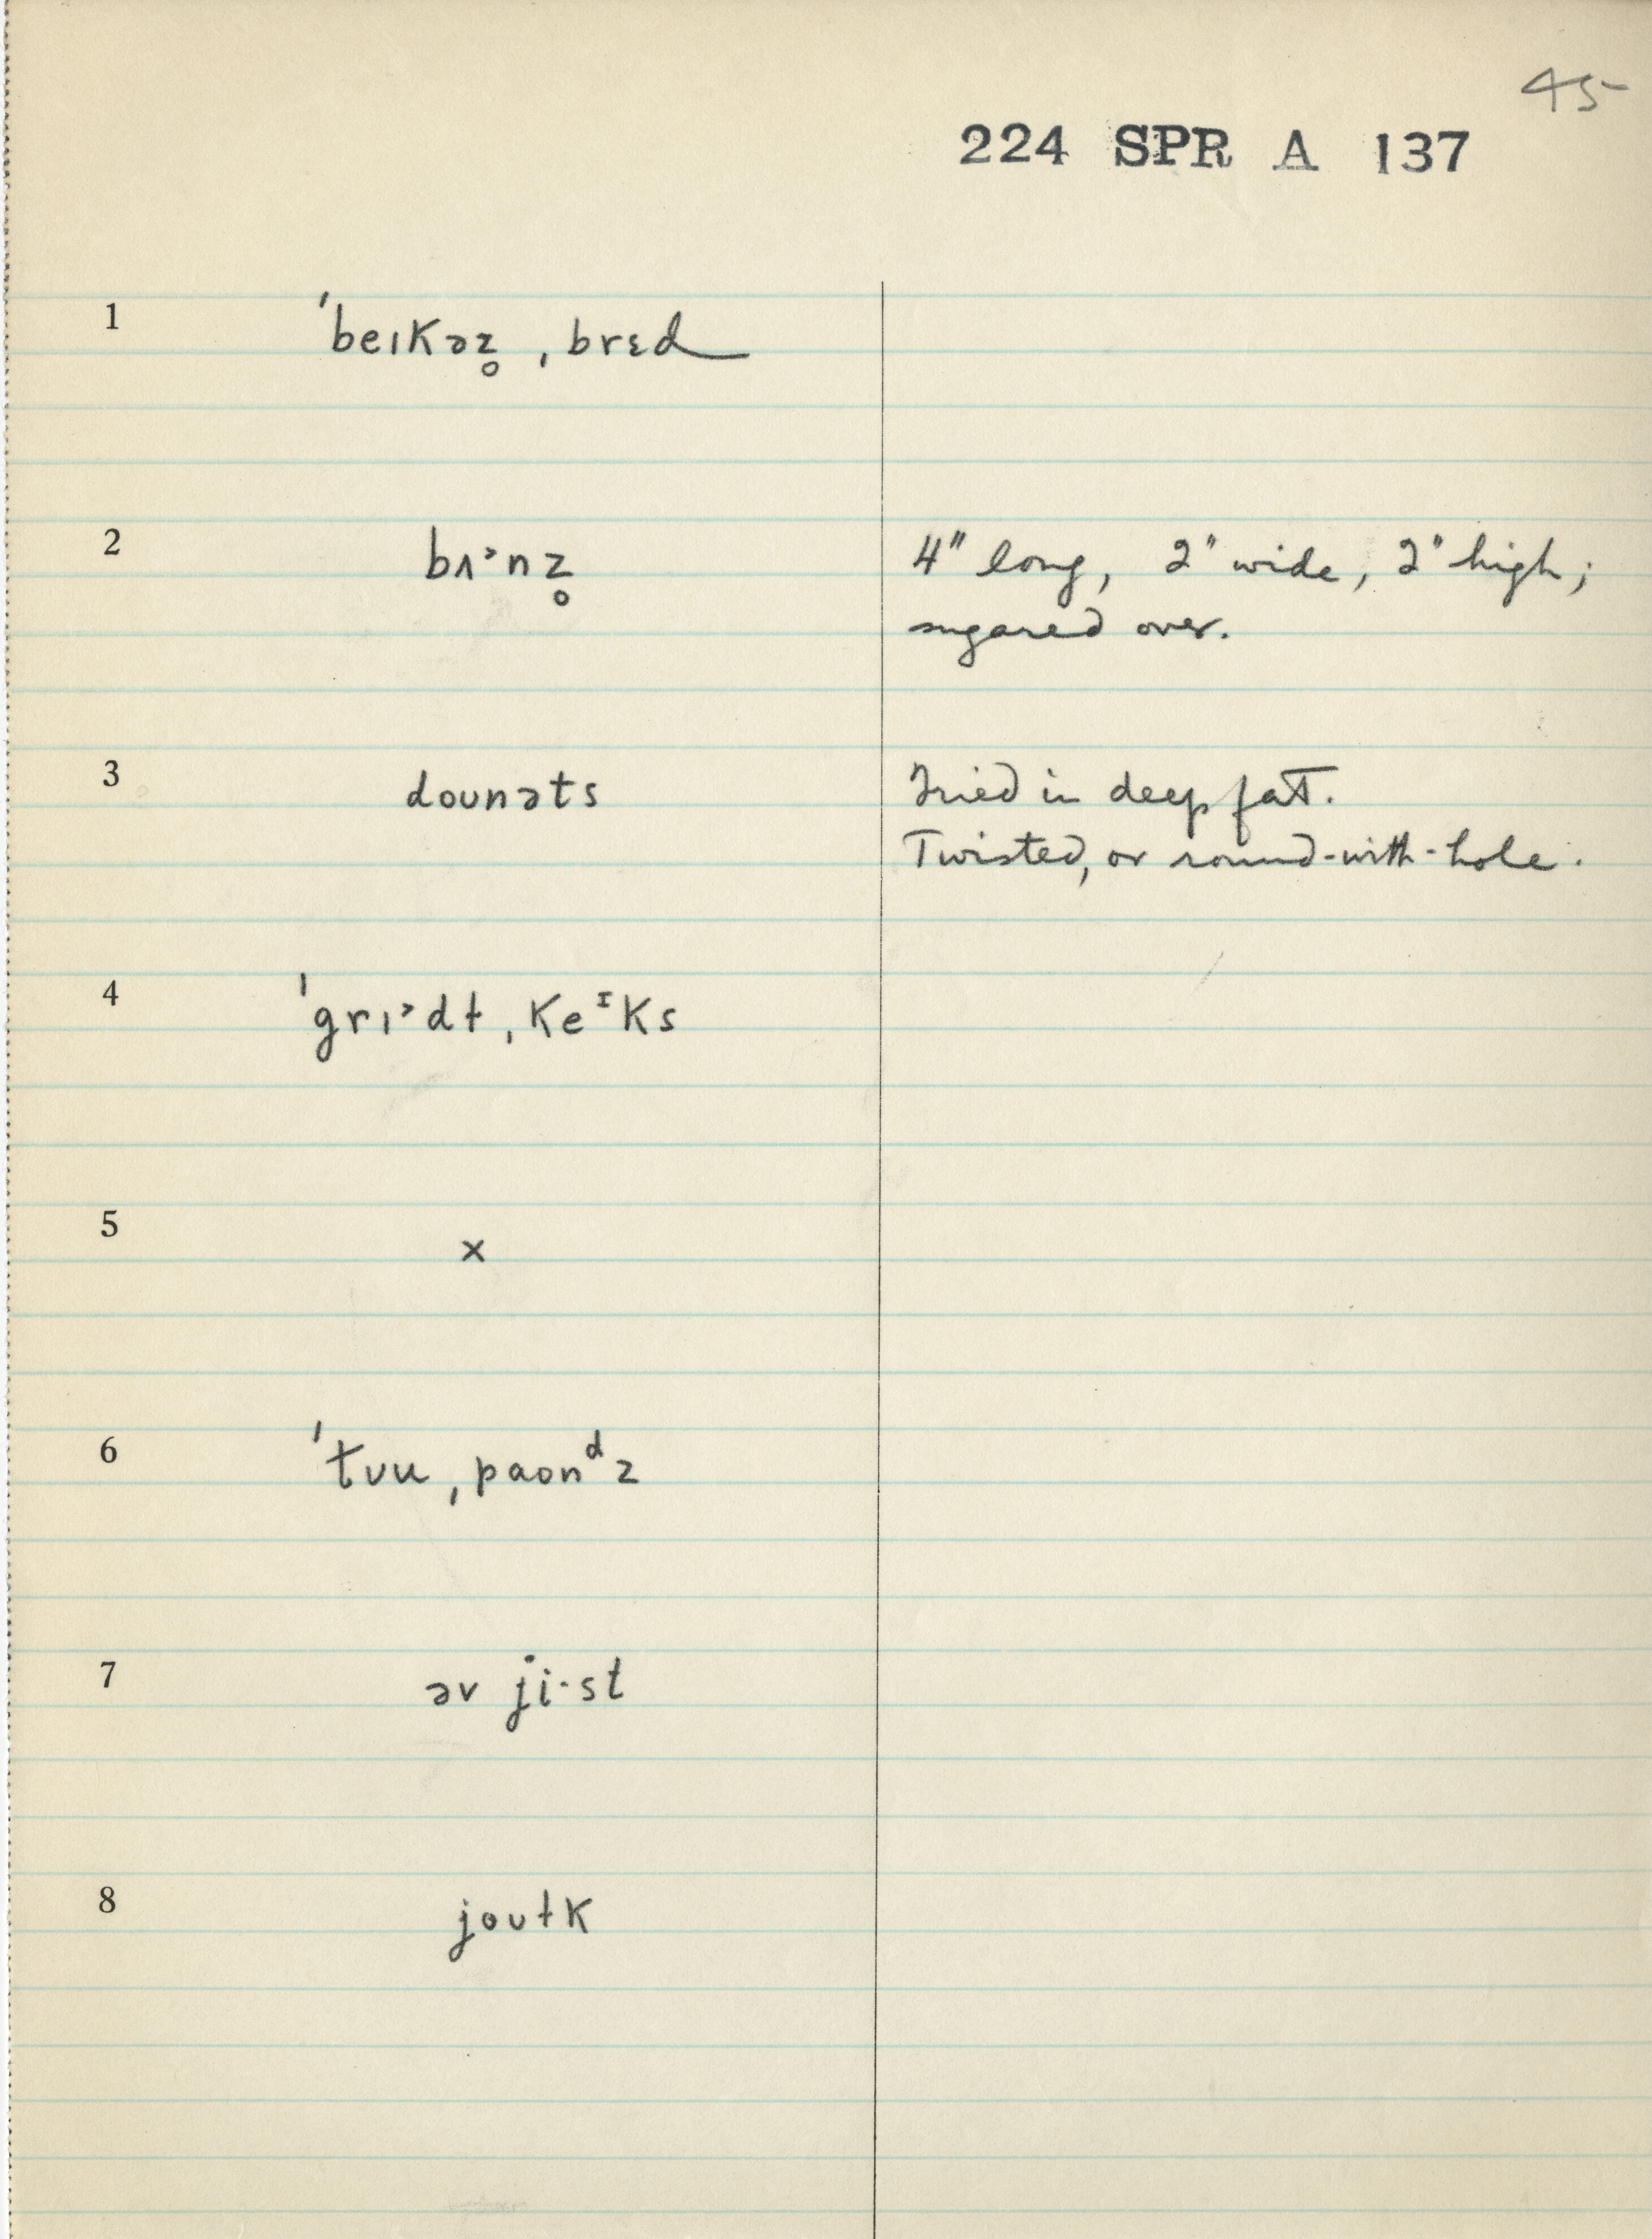 45
224 SPR A 137
1 ˈbeıkəz̥ ˌbrɛd
2 bʌ˃nz̥ 4" long, 2" wide, 2" high;
sugared over.
3 doʊnəts Fried in deep fat.
Twisted, or round-with-hole.
4 ˈgrı˃dɫ ˌkeᶦks
5 x
6 ˈtʊu ˌpaʊnᵈz
7 əv ji·st
8 joʊɫk